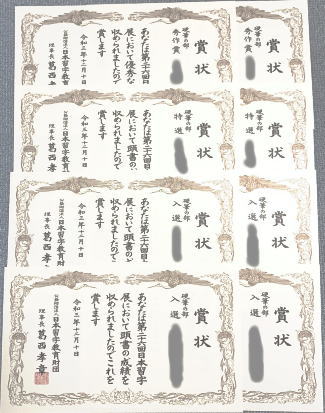 賞状
硬筆の部
秀作賞
あなたは第二十六回
展において優秀な
収められましたので
賞します
令和三年十二月十日
公益財団法人日本習字教育
理事長 葛西孝
賞状
硬筆の部
秀作賞
賞状
硬筆の部
特選
あなたは第二十六回日
展において頭書の
収められましたので
賞します
令和三年十二月十日
公益財団法人日本習字教育
理事長 葛西孝
賞状
硬筆の部
特選
賞状
硬筆の部
入選
あなたは第二十六回日
展において頭書の
収められましたのでこ
賞します
令和三年十二月十日
公益財団法人日本習字教育財
理事長 葛西孝
賞状
硬筆の部
入選
賞状
硬筆の部
入選
あなたは第二十六回日本習字
展において頭書の成績を
収められましたのでこれを
賞します
令和三年十二月十日
公益財団法人日本習字教育財団
理事長 葛西孝章
賞状
硬筆の部
入選